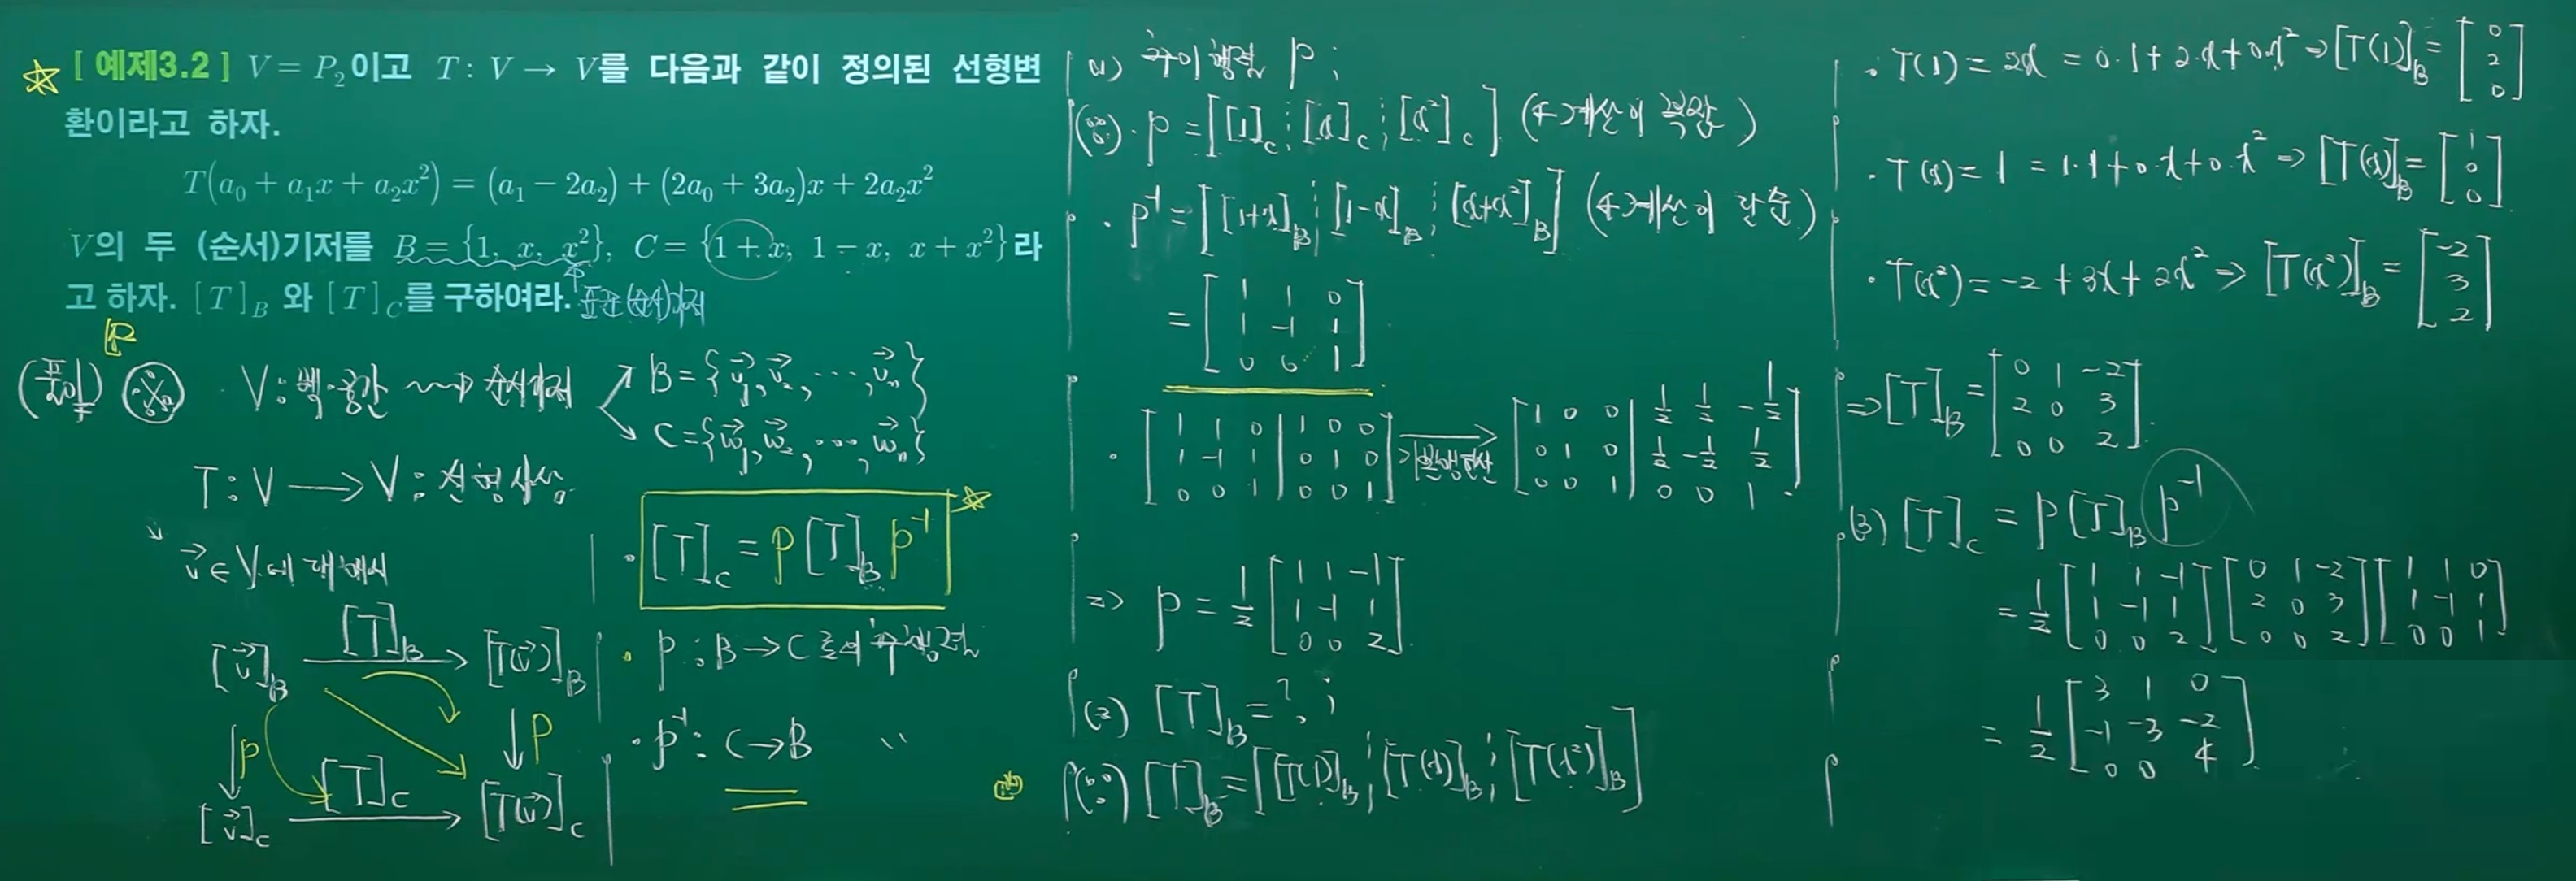 ☆ [ 예제3.2 ] V = P₂이고 T : V → V를 다음과 같이 정의된 선형변
환이라고 하자.
T(a₀ + a₁x + a₂x²) = (a₁ − 2a₂) + (2a₀ + 3a₂)x + 2a₂x²
V의 두 (순서)기저를 B = {1, x, x²}, C = {1 + x, 1 − x, x + x²}라
고 하자. [T]_B 와 [T]_C를 구하여라. 표준(순서)기저
P
(풀이) ※ · V : 벡·공간 ⇝ 순서기저
B = {v⃗₁, v⃗₂, ⋯, v⃗ₙ}
C = {w⃗₁, w⃗₂, ⋯, w⃗ₙ}
T : V → V : 선형사상
v⃗ ∈ V에 대해서
[v⃗]_B → [T]_B → [T(v⃗)]_B
↓ P ↓ P
[v⃗]_C → [T]_C → [T(v⃗)]_C
· [T]_C = P [T]_B P⁻¹ ☆
· P : B → C 로의 추·행렬
· P⁻¹ : C → B 〃
(1) 추이행렬 P ;
(∵) · P = [[1]_C ⋮ [x]_C ⋮ [x²]_C] (← 계산이 복잡)
· P⁻¹ = [[1+x]_B ⋮ [1−x]_B ⋮ [x+x²]_B] (← 계산이 단순)
= [1 1 0
1 −1 1
0 0 1]
· [1 1 0 | 1 0 0
1 −1 1 | 0 1 0
0 0 1 | 0 0 1] → 기본행연산 [1 0 0 | 1/2 1/2 −1/2
0 1 0 | 1/2 −1/2 1/2
0 0 1 | 0 0 1]
⇒ P = 1/2 [1 1 −1
1 −1 1
0 0 2]
(2) [T]_B = ? ;
(∵) [T]_B = [[T(1)]_B ⋮ [T(x)]_B ⋮ [T(x²)]_B]
· T(1) = 2x = 0·1 + 2·x + 0·x² ⇒ [T(1)]_B = [0
2
0]
· T(x) = 1 = 1·1 + 0·x + 0·x² ⇒ [T(x)]_B = [1
0
0]
· T(x²) = −2 + 3x + 2x² ⇒ [T(x²)]_B = [−2
3
2]
⇒ [T]_B = [0 1 −2
2 0 3
0 0 2]
(3) [T]_C = P [T]_B P⁻¹
= 1/2 [1 1 −1
1 −1 1
0 0 2] [0 1 −2
2 0 3
0 0 2] [1 1 0
1 −1 1
0 0 1]
= 1/2 [3 1 0
−1 −3 −2
0 0 4]